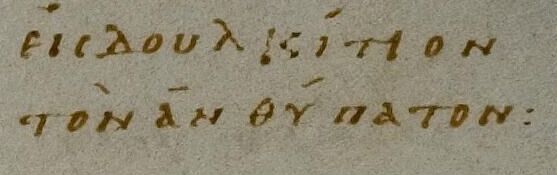 εἰς δουλκίτιον
τὸν ἀνθύπατον: